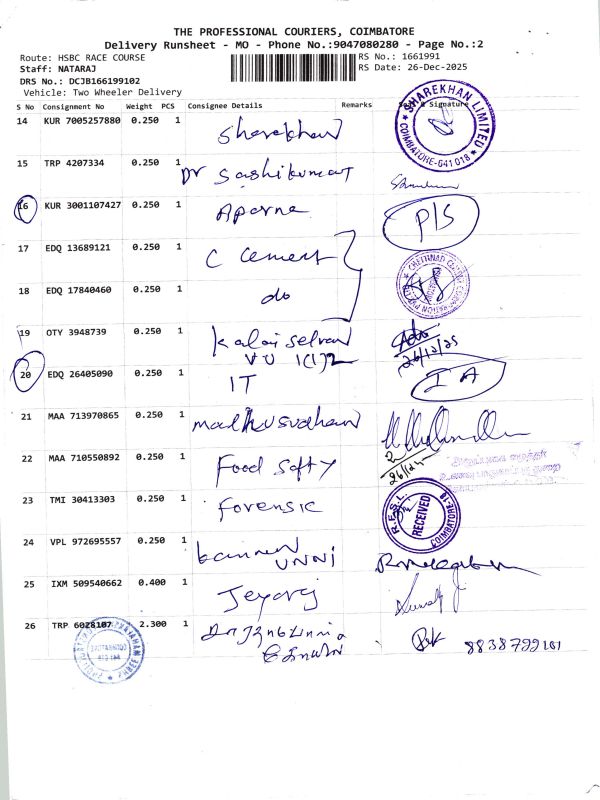 THE PROFESSIONAL COURIERS, COIMBATORE
Delivery Runsheet - MO - Phone No.:9047080280 - Page No.:2
Route: HSBC RACE COURSE
RS No.: 1661991
Staff: NATARAJ
RS Date: 26-Dec-2025
DRS No.: DCJB166199102
Vehicle: Two Wheeler Delivery
S No Consignment No Weight PCS Consignee Details Remarks & Signature
14 KUR 7005257880 0.250 1 Sharekhan
SHAREKHAN LIMITED COIMBATORE-641018
15 TRP 4207334 0.250 1 Dr Sashikumar
16 KUR 3001107427 0.250 1 Aparna P/S
17 EDQ 13689121 0.250 1 C Cement
18 EDQ 17840460 0.250 1 do
19 OTY 3948739 0.250 1 Kalai selvan
26/12/25
20 EDQ 26405090 0.250 1 IT I A
21 MAA 713970865 0.250 1 madhusudhan
22 MAA 710550892 0.250 1 Food Safty
23 TMI 30413303 0.250 1 Forensic
R.F.S.L. RECEIVED COIMBATORE-18
24 VPL 972695557 0.250 1
UNNI
25 IXM 509540662 0.400 1 Jeyaraj
26 TRP 6028107 2.300 1
8838799101